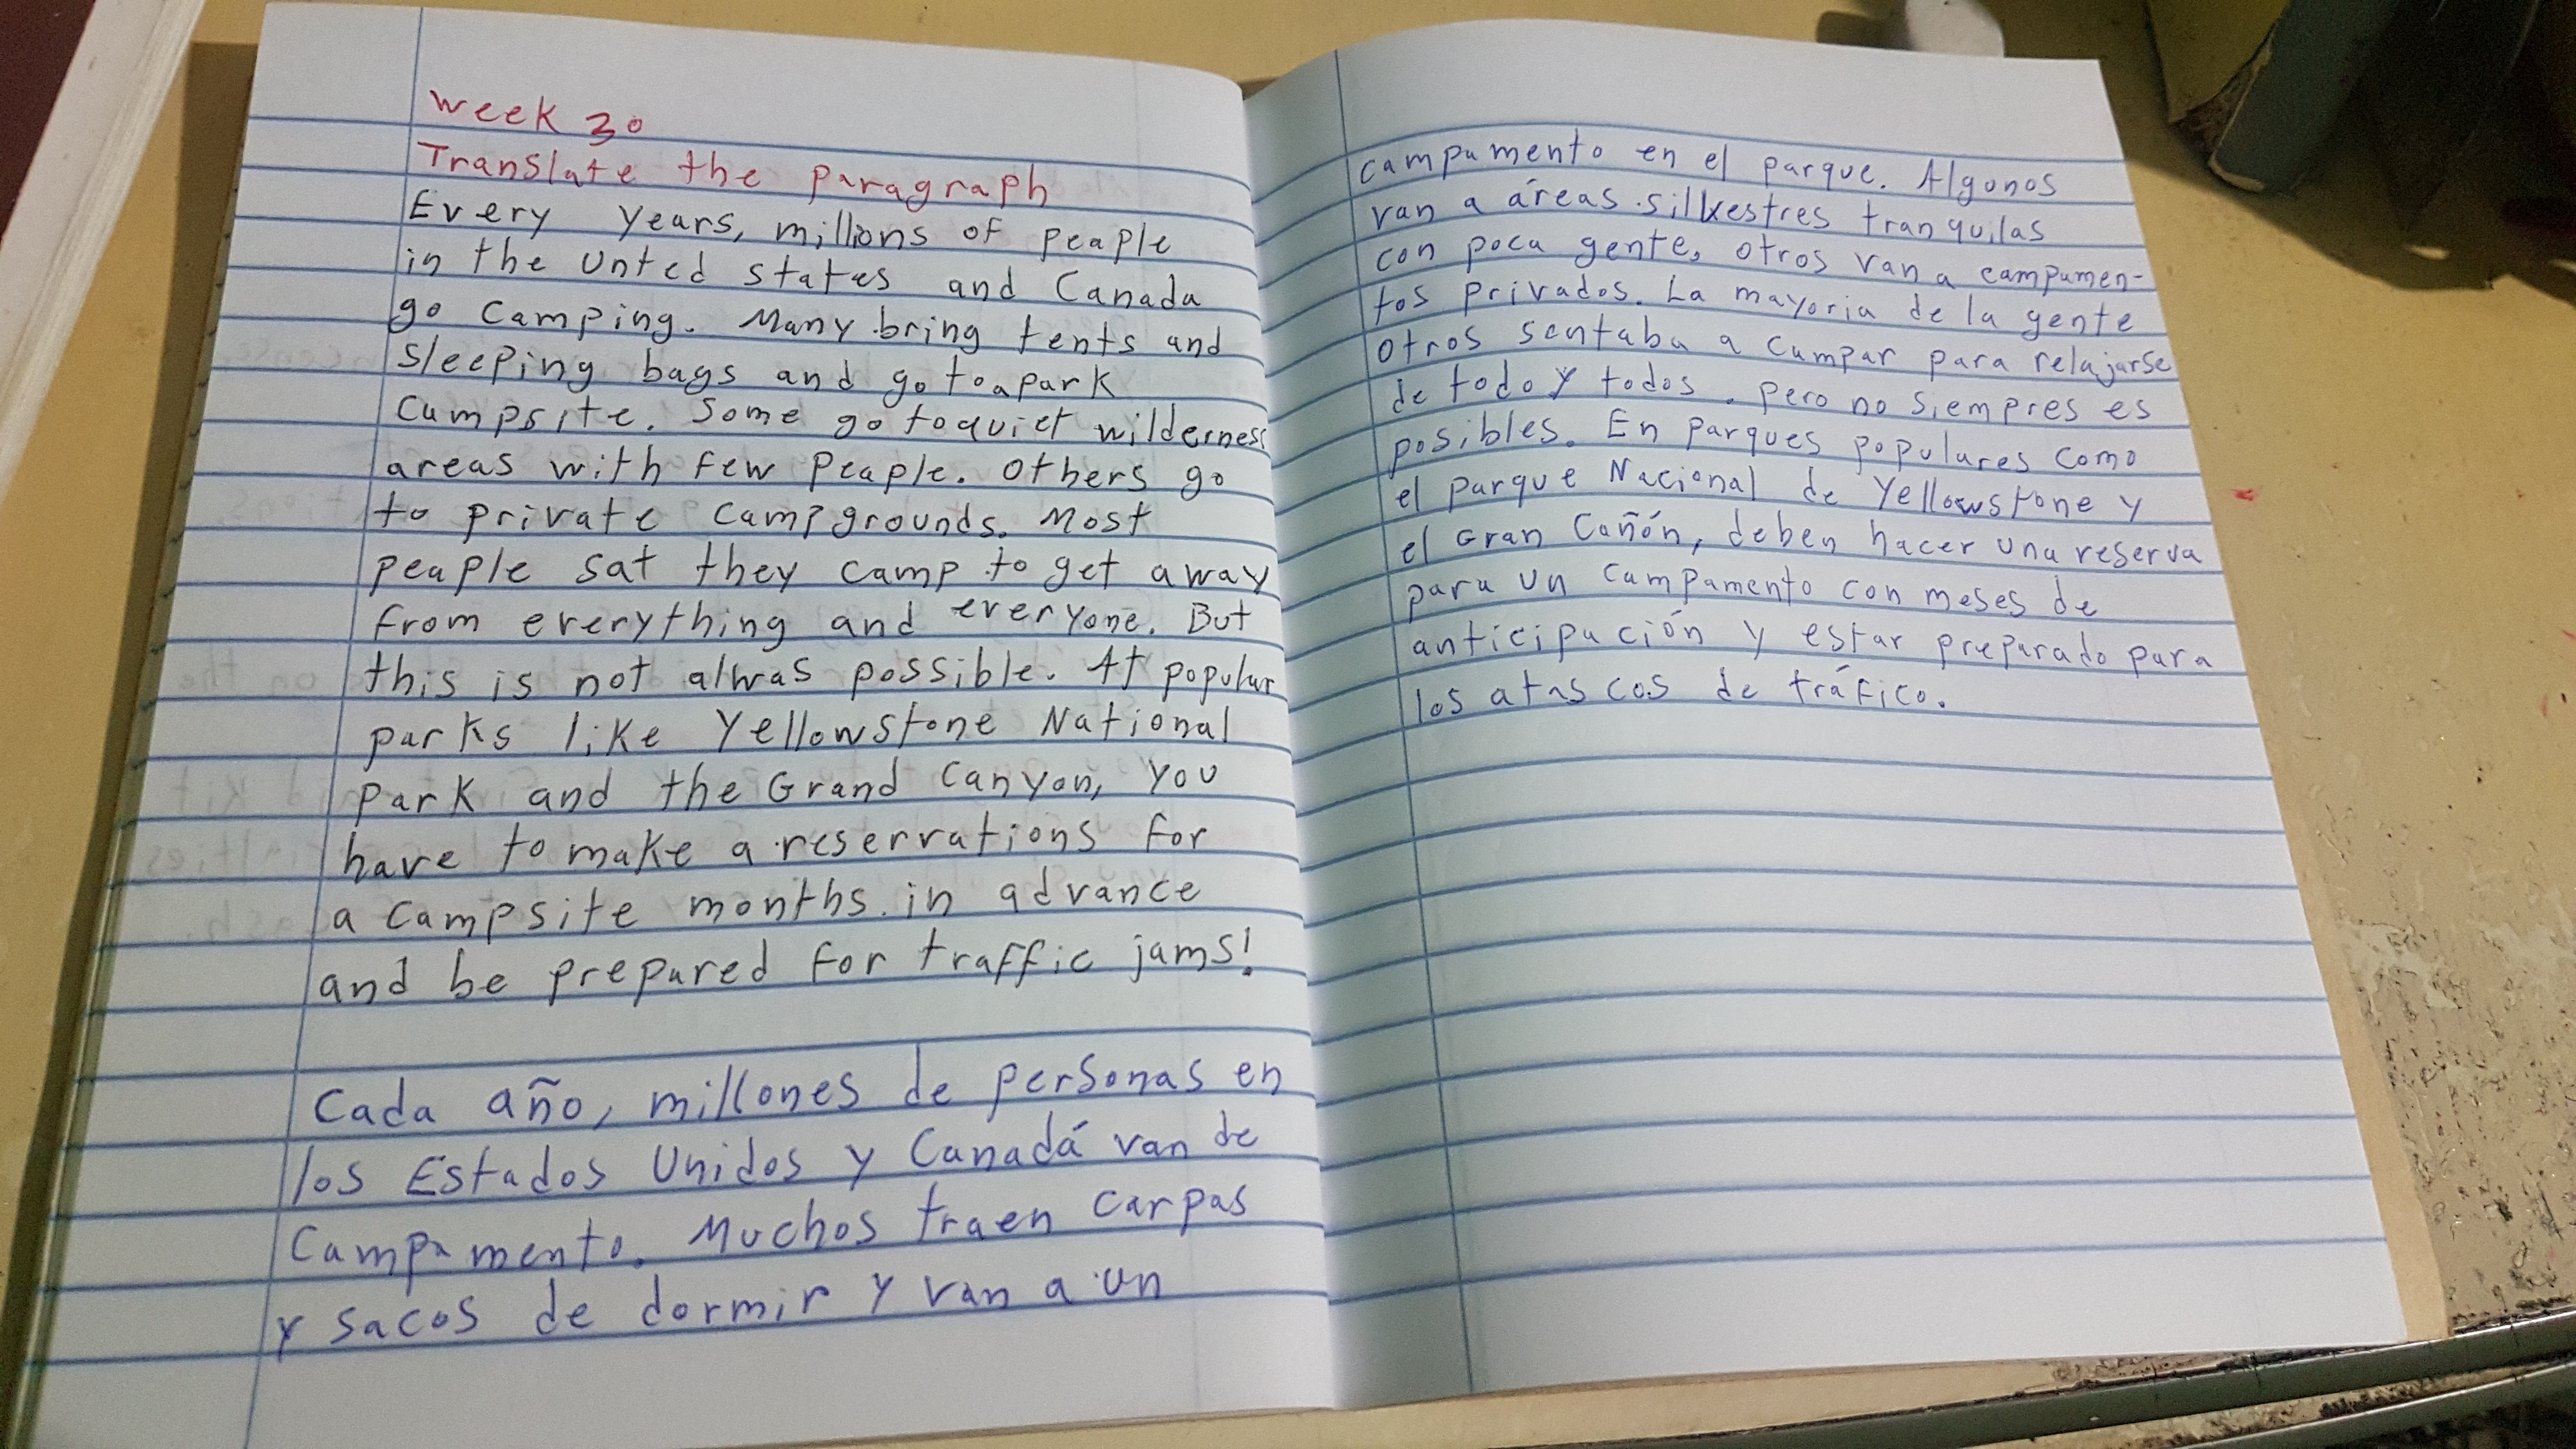 week 30
Translate the paragraph
Every years, millions of peaple
in the Unted states and Canada
go camping. Many bring tents and
sleeping bags and go to a park
Campsite. Some go to quiet wilderness
areas with few peaple. Others go
to private campgrounds. Most
peaple sat they camp to get away
from everything and everyone. But
this is not alwas possible. At popular
parks like Yellowstone National
Park and the Grand Canyon, you
have to make a reservations for
a campsite months in advance
and be prepared for traffic jams!
Cada año, millones de personas en
los Estados Unidos y Canadá van de
Campamento. Muchos traen carpas
y sacos de dormir y van a un
campamento en el parque. Algonos
van a áreas silvestres tranquilas
con poca gente, otros van a campamen-
tos privados. La mayoria de la gente
otros sentaba a campar para relajarse
de todo y todos. pero no siempres es
posibles. En parques populares como
el parque Nacional de Yellowstone y
el Gran Cañón, deben hacer una reserva
para un campamento con meses de
anticipación y estar preparado para
los atascos de tráfico.